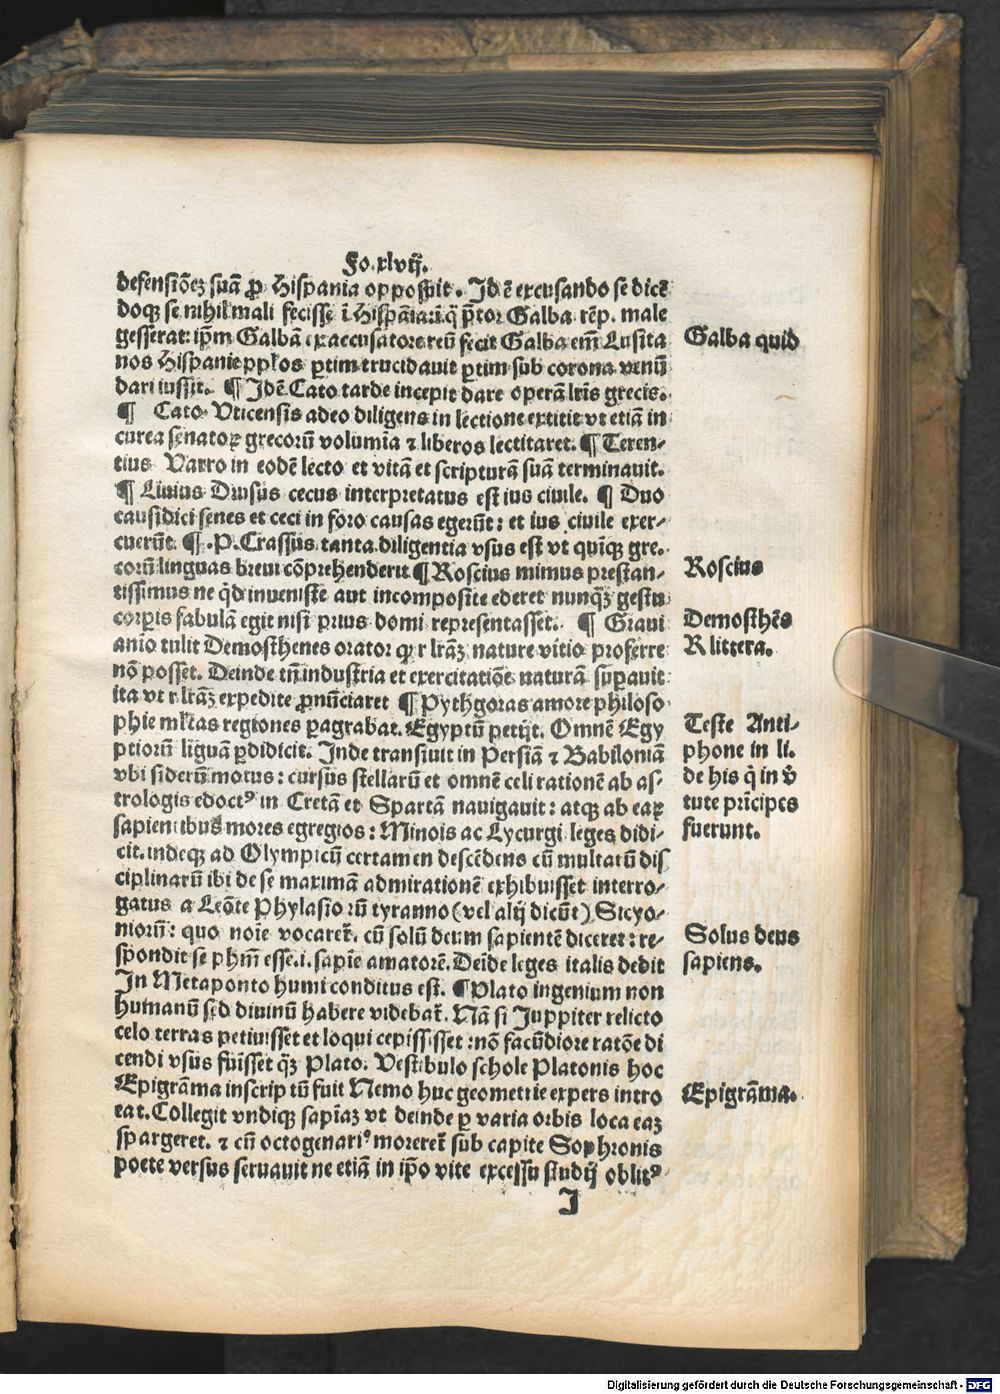 Fo.xlvij.
defensiōeꝫ suā ꝓ Hispania opposuit. Idē excusando se dicē
doqꝫ se nihil mali fecisse ī Hispāia: p̄tor Galba rēp. male
gesserat: ip̄m Galbā ex accusatore reū fecit Galba em̄ Lusita
nos Hispanie pp̄los ꝑtim trucidauit ꝑtim sub corona venū
dari iussit. ¶ Idē Cato tarde incepit dare operā lr̄is grecis.
¶ Cato Vticensis adeo diligens in lectione extitit vt etiā in
curea senatoꝝ grecorū volumīa ⁊ liberos lectitaret. ¶ Teren-
tius Varro in eodē lecto et vitā et scripturā suā terminauit.
¶ Liuius Drusus cecus interpretatus est ius ciuile. ¶ Duo
causidici senes et ceci in foro causas egerūt: et ius ciuile exer-
cuerūt. ¶ .P. Crassus tanta diligentia vsus est vt quīqꝫ gre-
corū linguas breui cōprehenderit ¶ Roscius mimus prestan-
tissimus ne q̇d inueniste aut incomposite ederet nunqꝫ gestu
corꝑis fabulā egit nisi prius domi representasset. ¶ Graui
anīo tulit Demosthenes orator ꝙ r lr̄aꝫ nature vitio proferre
nō posset. Deinde tn̄ industria et exercitatiōe naturā suꝑauit
ita vt r lr̄aꝫ expedite ꝓnūciaret ¶ Pythgoras amore philoso
phie ml̄tas regiones ꝑagrabat. Egyptū petijt. Omnē Egy
ptiorū līguā ꝑdidicit. Inde transiuit in Persiā ⁊ Babiloniā
vbi siderū motus: cursus stellarū et omnē celi rationē ab as-
trologis edoctꝰ in Cretā et Spartā nauigauit: atqꝫ ab eaꝝ
sapientibus mores egregios: Minois ac Lycurgi leges didi-
cit. indeqꝫ ad Olympicū certamen descēdens cū multarū dis
ciplinarū ibi de se maximā admirationē exhibuisset interro-
gatus a Leōte Phylasiorū tyranno (vel alij dicūt) Sicyo-
niorū: quo noīe vocaret̄. cū solū deum sapientē diceret: re-
spondit se phm̄ esse .i. sapīe amatorē. Deīde leges italis dedit
In Metaponto humi conditus est. ¶ Plato ingenium non
humanū sed diuinū habere videbat̄. Nā si Iuppiter relicto
celo terras petiuisset et loqui cepississet: nō facūdiore ratōe di
cendi vsus fuisset qꝫ Plato. Vestibulo schole Platonis hoc
Epigrāma inscriptū fuit Nemo huc geometrie expers intro
eat. Collegit vndiqꝫ sapīaꝫ vt deinde ꝑ varia orbis loca eaꝫ
spargeret. ⁊ cū octogenariꝰ moreret̄ sub capite Sophronis
poete versus seruauit ne etiā in ip̄o vite excessu studij oblitꝰ
I
Galba quid
Roscius
Demosthēs
R littera.
Teste Anti-
phone in li.
de his q̇ in v̇
tute prīcipes
fuerunt.
Solus deus
sapiens.
Epigrāma.
Digitalisierung gefördert durch die Deutsche Forschungsgemeinschaft - DFG